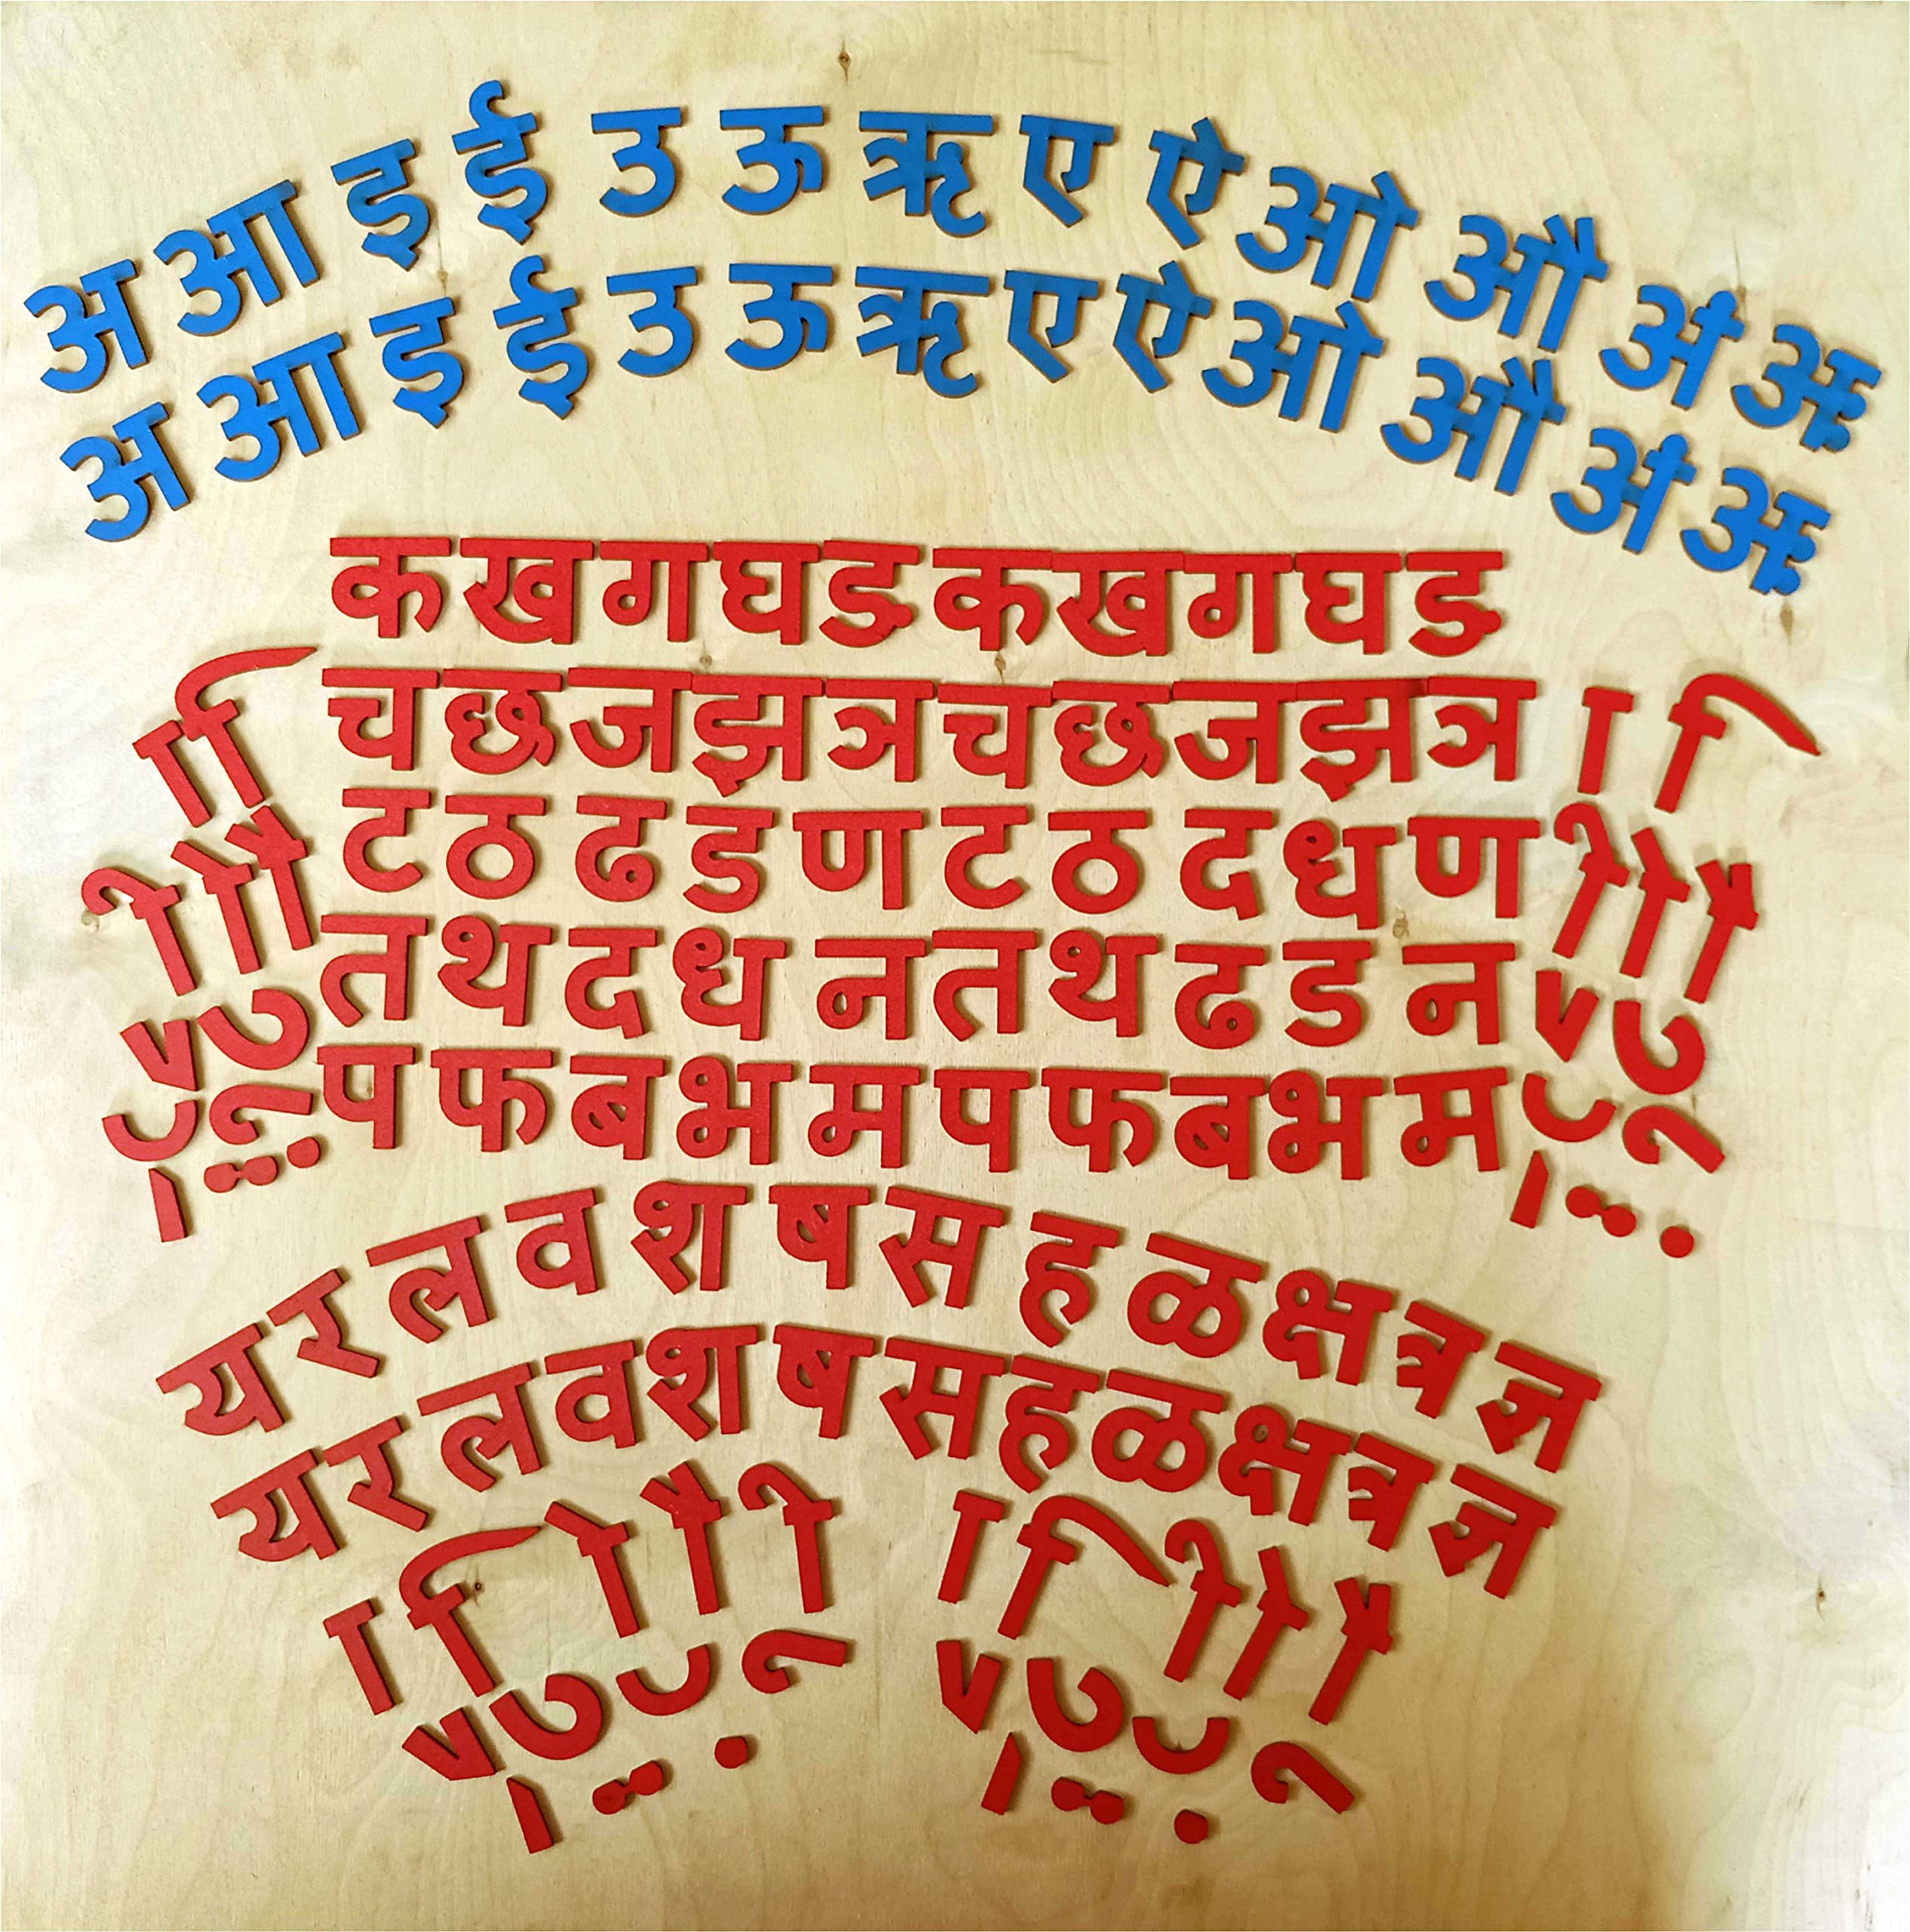 अ आ इ ई उ ऊ ऋ ए ऐ ओ औ अं अः
अ आ इ ई उ ऊ ऋ ए ऐ ओ औ अं अः
क ख ग घ ङ क ख ग घ ङ
च छ ज झ ञ च छ ज झ ञ
ट ठ ढ ड ण ट ठ द ध ण
त थ द ध न त थ ढ ड न
प फ ब भ म प फ ब भ म
य र ल व श ष स ह ळ क्ष त्र ज्ञ
य र ल व श ष स ह ळ क्ष त्र ज्ञ
ा ि ो ौ ी ा ि ी ो ौ